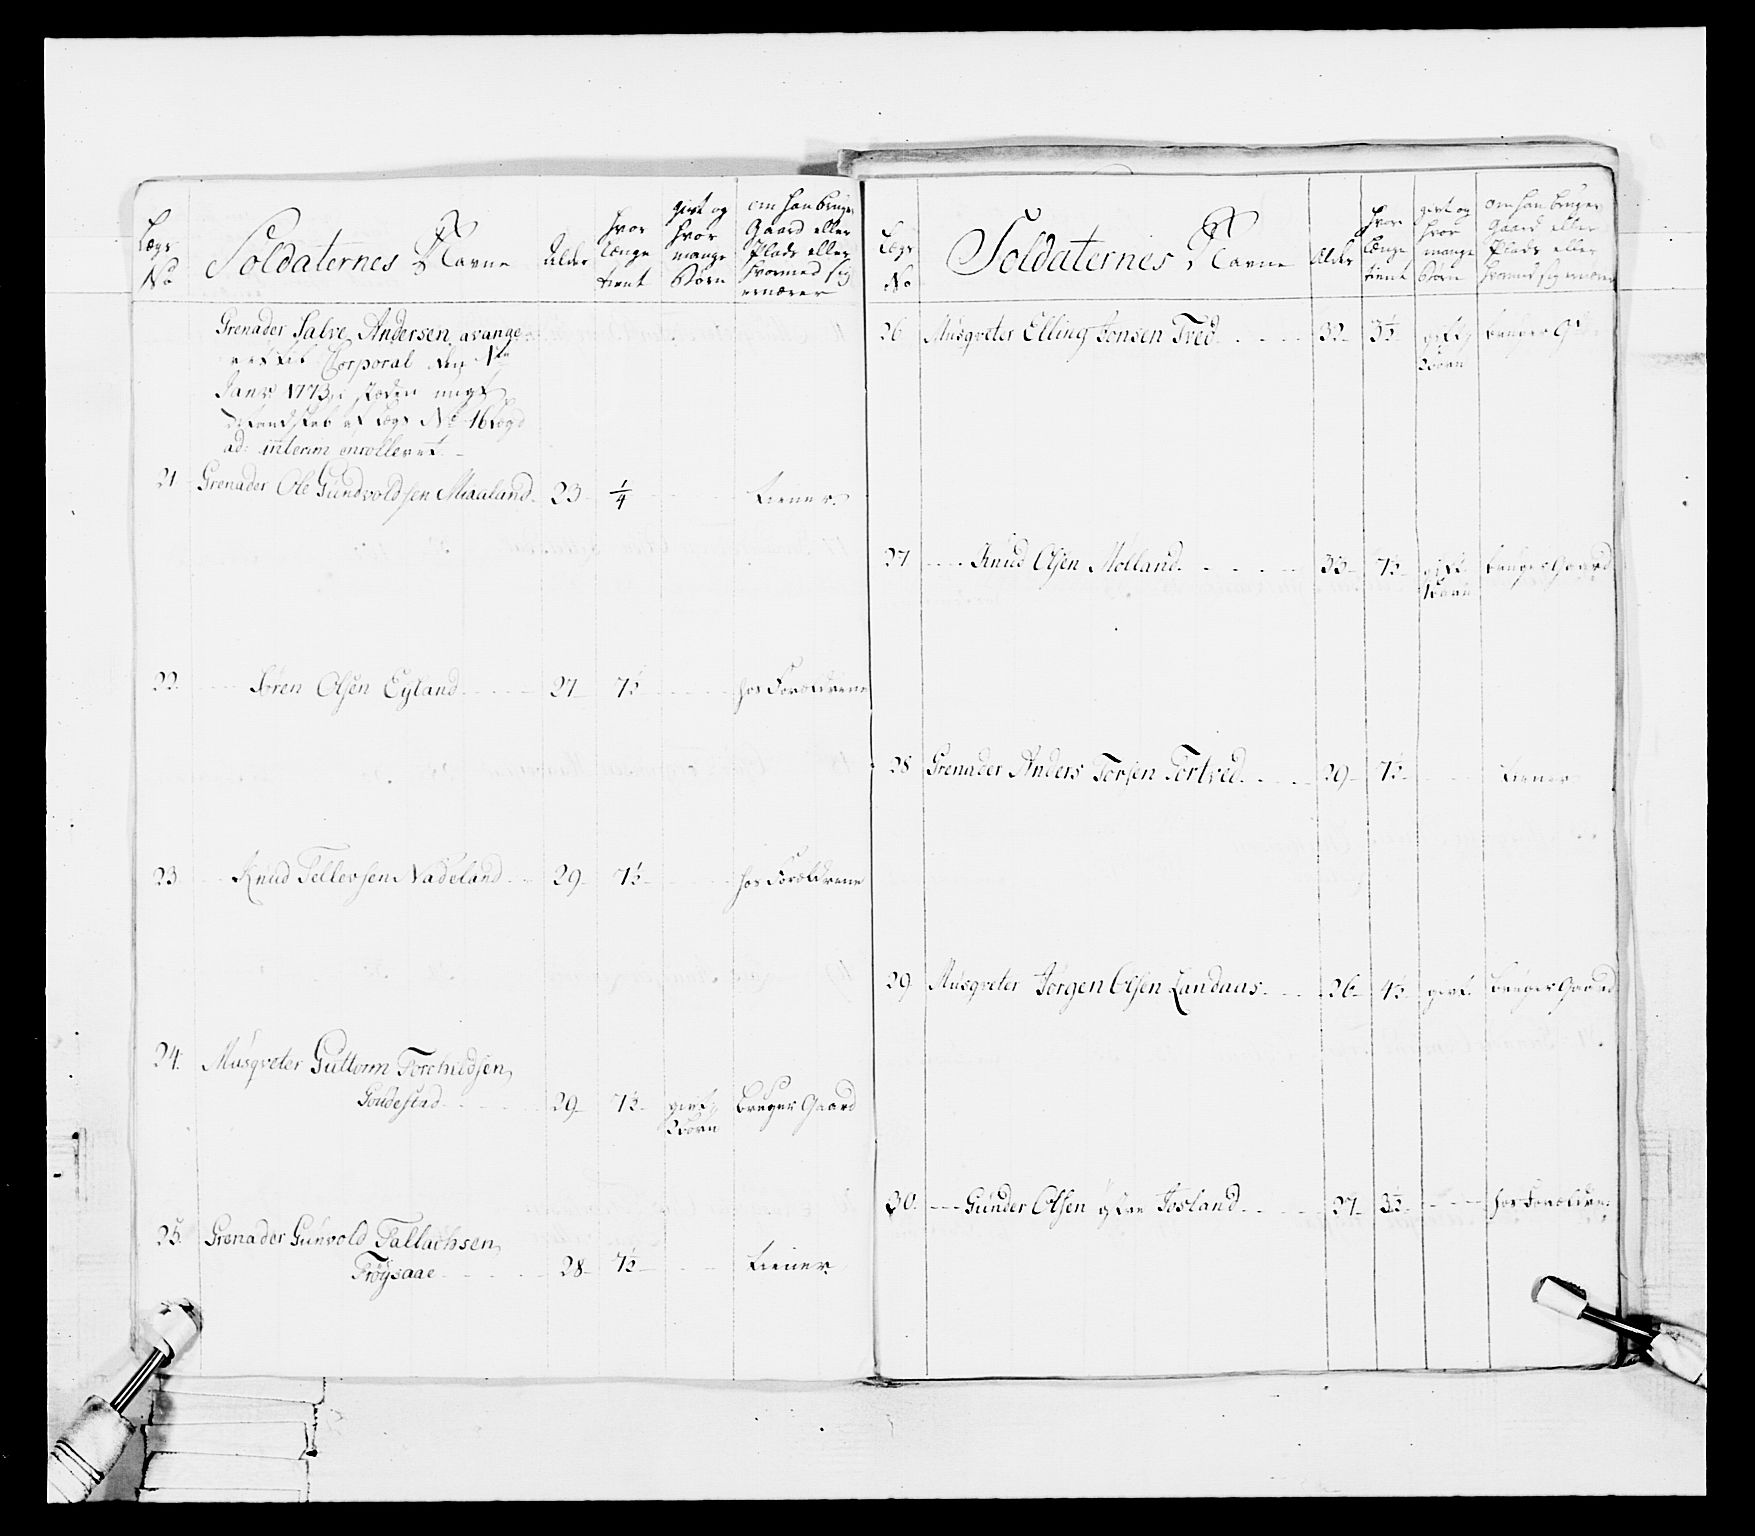 Lægs No
Soldaternes Navne
Alder
hvor længe tient
givt og hvor mange Børn
om han bruger Gaard eller Plads eller hvormed sig ernærer
Grenader Salve Andersen, avange-
Corporal den 1te
Janr 1773, i steden
af Lægs No 16
ad interim enrolleret. -
21 Grenader Ole Gundvoldsen Miaaland 23 1/4 tiener.
22. Sören Olsen Eyland 27 7½ hos Forældrene
23. Knud Tellevsen Nadeland 29 7½ hos Forældrene
24. Musqveter Guttorm Torchildsen,
Goudestad 29 7½ givt, bruger Gaard
2 börn
25. Grenader Gunvold Tallachsen,
Tröysaae 28 7½ tiener.
Lægs No
Soldaternes Navne
Alder
hvor længe tient
givt og hvor mange Börn
om han bruger Gaard eller Plads eller hvormed sig ernærer
26. Musqveter Elling Jonsen Tved 32 3½ gift, bruger
2 börn
27 Knud Olsen Mölland 33 7½ gift bruger Gaard
1 barn
28 Grenader Anders Torsen Tortved 29 7½ tiener
29. Musqveter Jörgen Olsen Landaas 26 4½ givt. bruger Gaard
30. Gunder Olsen Tosland 27 3½